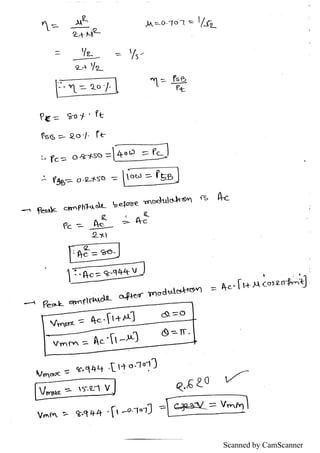 η = μ² / 2+μ²     μ=0.707 = 1/√2
= 1/2 / 2+1/2 = 1/5
∴ η = 20%.     η = PSB / Pt
Pc = 80% Pt
PSB = 20% Pt
∴ Pc = 0.8×50 = 40W = Pc
∴ PSB = 0.2×50 = 10W = PSB
→ Peak amplitude before modulation is Ac
Pc = Ac² / 2×1 = Ac²
Ac² = 80.
∴ Ac = 8.944 V
→ Peak amplitude after modulation = Ac·[1+ μ cos2πfmt]
Vmax = Ac·[1+μ]     θ=0
Vmin = Ac·[1-μ]     θ=π.
Vmax = 8.944 ·[1+0.707]
Vmax = 15.27 V     2.620 ✓
Vmin = 8.944 ·[1-0.707] = = Vmin
Scanned by CamScanner